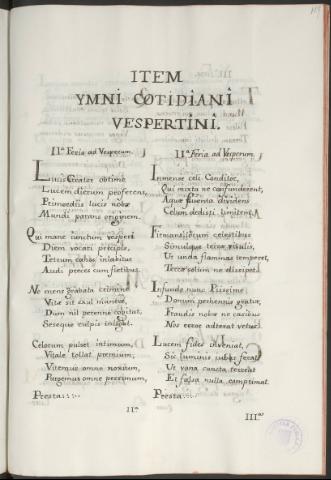 ITEM
YMNI COTIDIANI
VESPERTINI.
II.ª Feria ad Vesperum.
Lucis Creator optime
Lucem dierum proferens,
Primordiis lucis nobe
Mundi parans originem.
Qui mane iunctum vesperi
Diem vocari precipis,
Tetrum cahos inlabitur
Audi preces cum fletibus.
Ne mens grabata crimine
Vite sit exul munere,
Dum nil perenne cogitat,
Seseque culpis inligat.
Celorum pulset intimum,
Vitale tollat premium;
Vitemus omne noxium,
Purgemus omne pessimum,
Presta
II.ª
II.ª Feria ad Vesperum.
Inmense celi Conditor,
Qui mixta ne confunderent,
Aque fluenta dividens
Celum dedisti limitem,
Firmans locum celestibus
Simulque terre rivulis,
Ut unda flammas temperet,
Terre solum ne dissipet.
Infunde nunc Piissime
Donum perhennis gratie,
Fraudis nobe ne casibus
Nos error adterat vetus.
Lucem fides inveniat,
Sic luminis iubar ferat
Ut vana cuncta terreat
Et falsa nulla comprimat.
Presta
III.ª